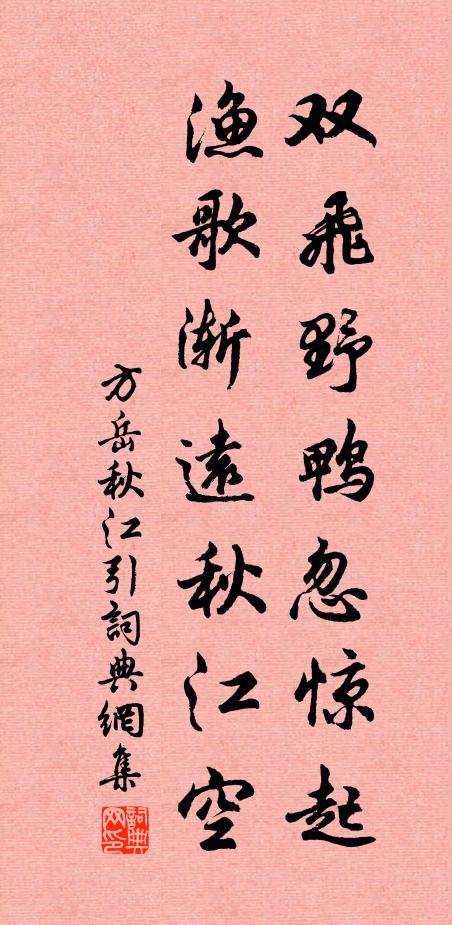 双飛野鸭忽惊起
渔歌渐遠秋江空
方岳秋江引詞典網集
詞典网印